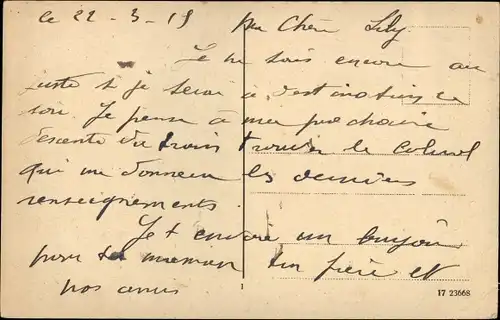 le 22 - 3 - 19 Ma Chère Lily
Je ne sais encore au
juste si je serai à destination ce
soir. Je pense à ma prochaine
descente du train trouver le colonel
qui me donnera les derniers
renseignements.
Je t envoie un bonjour
pour ta maman ton frère et
nos amis
17 23668